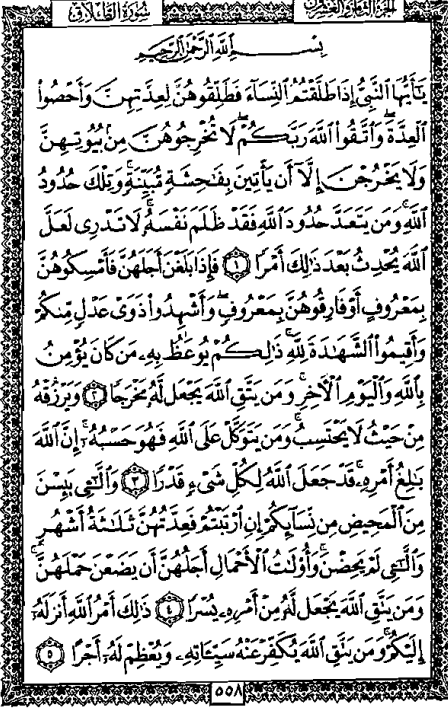 سُورَةُ الطَّلَاقِ
الجزء الثامن والعشرون
بِسْمِ اللَّهِ الرَّحْمَٰنِ الرَّحِيمِ
يَٰٓأَيُّهَا ٱلنَّبِيُّ إِذَا طَلَّقْتُمُ ٱلنِّسَآءَ فَطَلِّقُوهُنَّ لِعِدَّتِهِنَّ وَأَحْصُوا۟
ٱلْعِدَّةَ ۖ وَٱتَّقُوا۟ ٱللَّهَ رَبَّكُمْ ۖ لَا تُخْرِجُوهُنَّ مِنۢ بُيُوتِهِنَّ
وَلَا يَخْرُجْنَ إِلَّآ أَن يَأْتِينَ بِفَٰحِشَةٍ مُّبَيِّنَةٍ ۚ وَتِلْكَ حُدُودُ
ٱللَّهِ ۚ وَمَن يَتَعَدَّ حُدُودَ ٱللَّهِ فَقَدْ ظَلَمَ نَفْسَهُۥ ۚ لَا تَدْرِى لَعَلَّ
ٱللَّهَ يُحْدِثُ بَعْدَ ذَٰلِكَ أَمْرًا ١ فَإِذَا بَلَغْنَ أَجَلَهُنَّ فَأَمْسِكُوهُنَّ
بِمَعْرُوفٍ أَوْ فَارِقُوهُنَّ بِمَعْرُوفٍ وَأَشْهِدُوا۟ ذَوَىْ عَدْلٍ مِّنكُمْ
وَأَقِيمُوا۟ ٱلشَّهَٰدَةَ لِلَّهِ ۚ ذَٰلِكُمْ يُوعَظُ بِهِۦ مَن كَانَ يُؤْمِنُ
بِٱللَّهِ وَٱلْيَوْمِ ٱلْءَاخِرِ ۚ وَمَن يَتَّقِ ٱللَّهَ يَجْعَل لَّهُۥ مَخْرَجًا ٢ وَيَرْزُقْهُ
مِنْ حَيْثُ لَا يَحْتَسِبُ ۚ وَمَن يَتَوَكَّلْ عَلَى ٱللَّهِ فَهُوَ حَسْبُهُۥٓ ۚ إِنَّ ٱللَّهَ
بَٰلِغُ أَمْرِهِۦ ۚ قَدْ جَعَلَ ٱللَّهُ لِكُلِّ شَىْءٍ قَدْرًا ٣ وَٱلَّٰٓـِٔى يَئِسْنَ
مِنَ ٱلْمَحِيضِ مِن نِّسَآئِكُمْ إِنِ ٱرْتَبْتُمْ فَعِدَّتُهُنَّ ثَلَٰثَةُ أَشْهُرٍ
وَٱلَّٰٓـِٔى لَمْ يَحِضْنَ ۚ وَأُو۟لَٰتُ ٱلْأَحْمَالِ أَجَلُهُنَّ أَن يَضَعْنَ حَمْلَهُنَّ ۚ
وَمَن يَتَّقِ ٱللَّهَ يَجْعَل لَّهُۥ مِنْ أَمْرِهِۦ يُسْرًا ٤ ذَٰلِكَ أَمْرُ ٱللَّهِ أَنزَلَهُۥٓ
إِلَيْكُمْ ۚ وَمَن يَتَّقِ ٱللَّهَ يُكَفِّرْ عَنْهُ سَيِّـَٔاتِهِۦ وَيُعْظِمْ لَهُۥٓ أَجْرًا ٥
٥٥٨